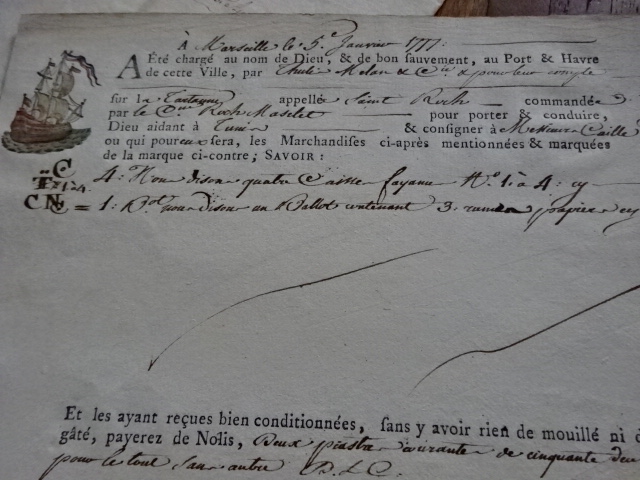 À Marseille le 5.e Janvier 1777.
A Été chargé au nom de Dieu, & de bon sauvement, au Port & Havre
de cette Ville, par Thulis Melan & Cie & pour leur compte
sur la Tartanne appellé Saint Roch commandée
par le C.ne Roch Masclet pour porter & conduire,
Dieu aidant à Tunis & consigner à Messieurs Caille
ou qui pour eux sera, les Marchandises ci-après mentionnées & marquées
de la marque ci-contre; SAVOIR:
C
T 1 à 4 4: Nous disons quatre Caisses fayance N.o 1. à 4: cy
CN = 1: B.ot nous disons un Ballot contenant 3. rames papier cy
Et les ayant reçues bien conditionnées, sans y avoir rien de mouillé ni
gâté, payerez de Nolis, Deux piastres courantes de cinquante deux
pour le tout sans autre D.L.C.